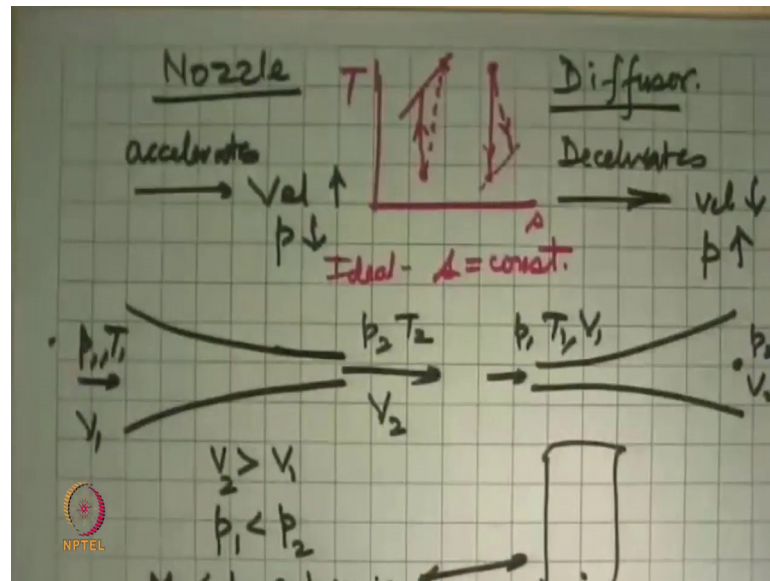 Nozzle
T
Diffusor.
accelerates
Vel ↑
p ↓
s
Decelerates
vel ↓
p ↑
Ideal - s = const.
p₁, T₁
V₁
p₂ T₂
V₂
p₁ T₁, V₁
V₂ > V₁
p₁ < p₂
NPTEL